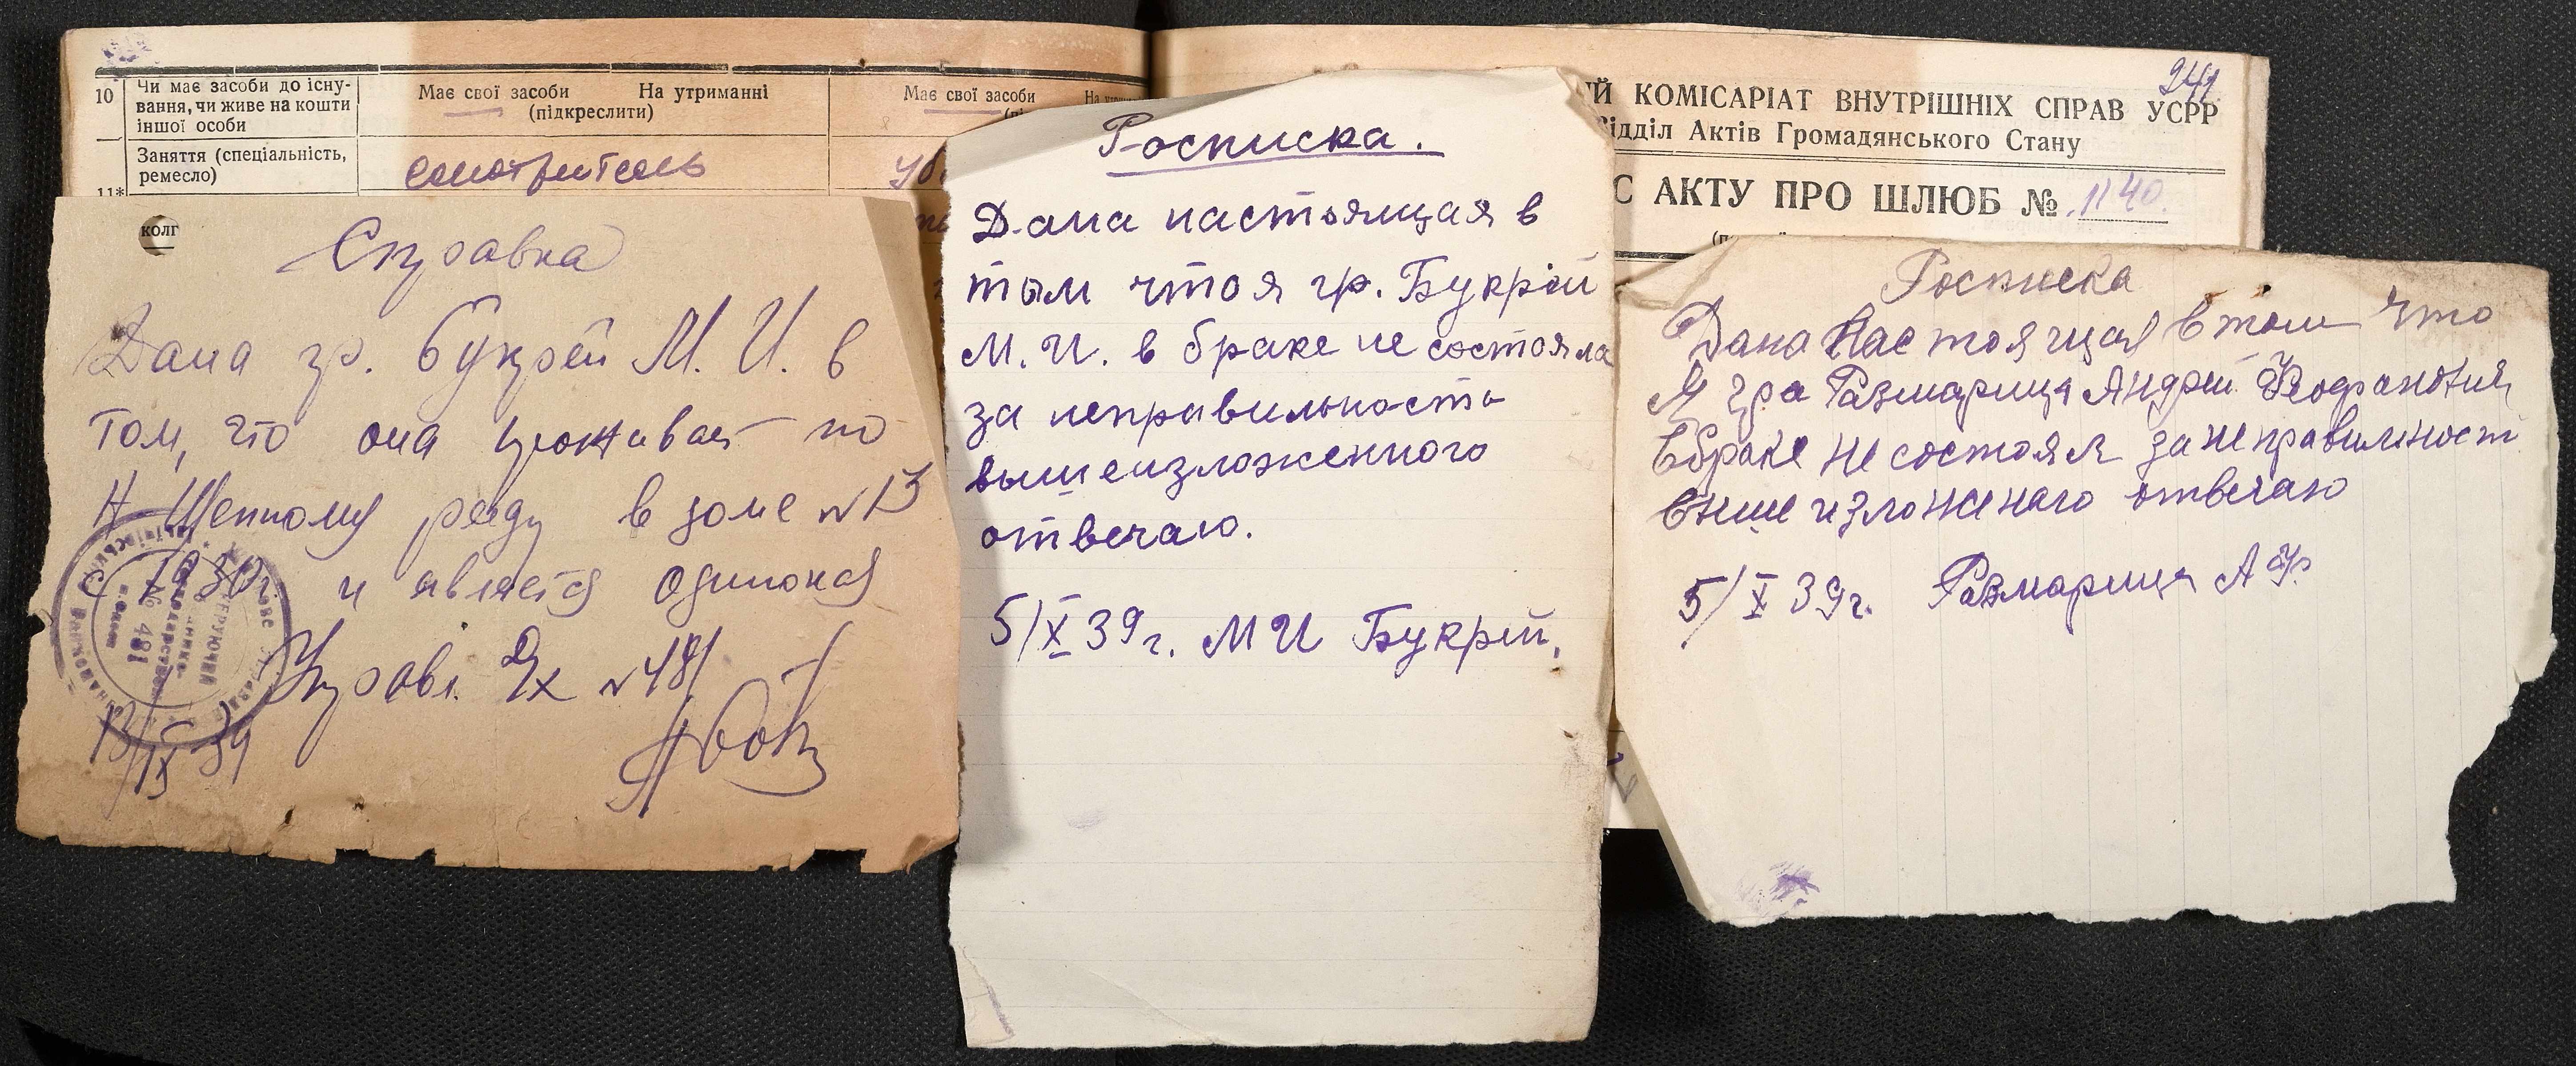 10
Чи має засоби до існу-
вання, чи живе на кошти
іншої особи
Має свої засоби На утриманні
(підкреслити)
Має свої засоби
Заняття (спеціальність,
ремесло)
смотритель
11*
241
КОМІСАРІАТ ВНУТРІШНІХ СПРАВ УСРР
Відділ Актів Громадянського Стану
АКТУ ПРО ШЛЮБ № 1140
колг
Справка
Дана гр. Букрей М. И. в
том, что она проживает по
Н Шепному ряду в доме № 13
с 1930г и является одинокая
Управл. Дх № 481
13/IX 39
Росписка.
Дана настоящая в
том что я гр. Букрей
М. И. в браке не состояла
за неправильность
вышеизложенного
отвечаю.
5/X 39 г. М И Букрей.
Росписка
Дана Настоящая в том что
Я гра Размарица Андрей Феофанович
в браке не состоял за неправильност
выше изложенаго отвечаю
5/X 39 г. Размарица А Ф